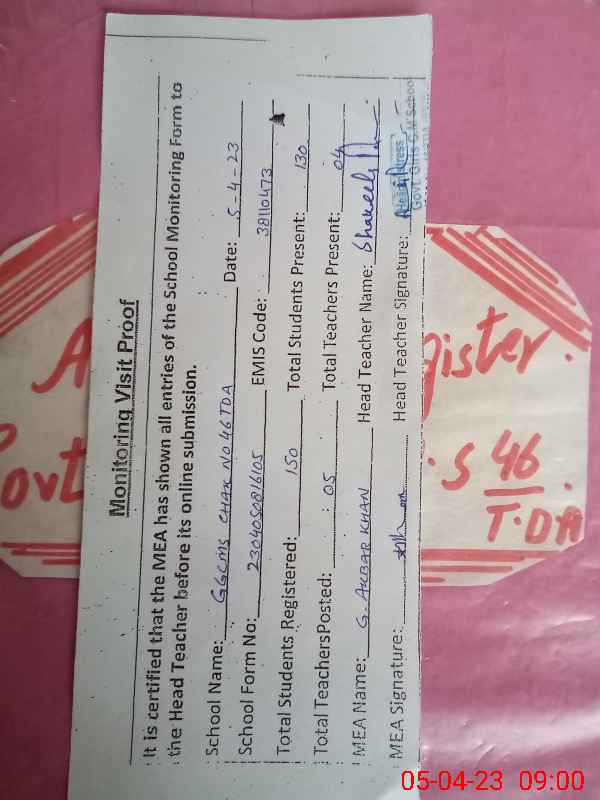 Monitoring Visit Proof
It is certified that the MEA has shown all entries of the School Monitoring Form to
the Head Teacher before its online submission.
School Name: GGCMS CHAK NO 46 TDA Date: 5-4-23
School Form No: 2304050816105 EMIS Code: 38110473
Total Students Registered: 150 Total Students Present: 130
Total TeachersPosted: 05 Total Teachers Present: 04
MEA Name: G. AKBAR KHAN Head Teacher Name: Shakeela
MEA Signature: Head Teacher Signature:
Headmistress
Govt. Girls C.M School
A
gister.
ovt
.S 46
T.DA
05-04-23 09:00